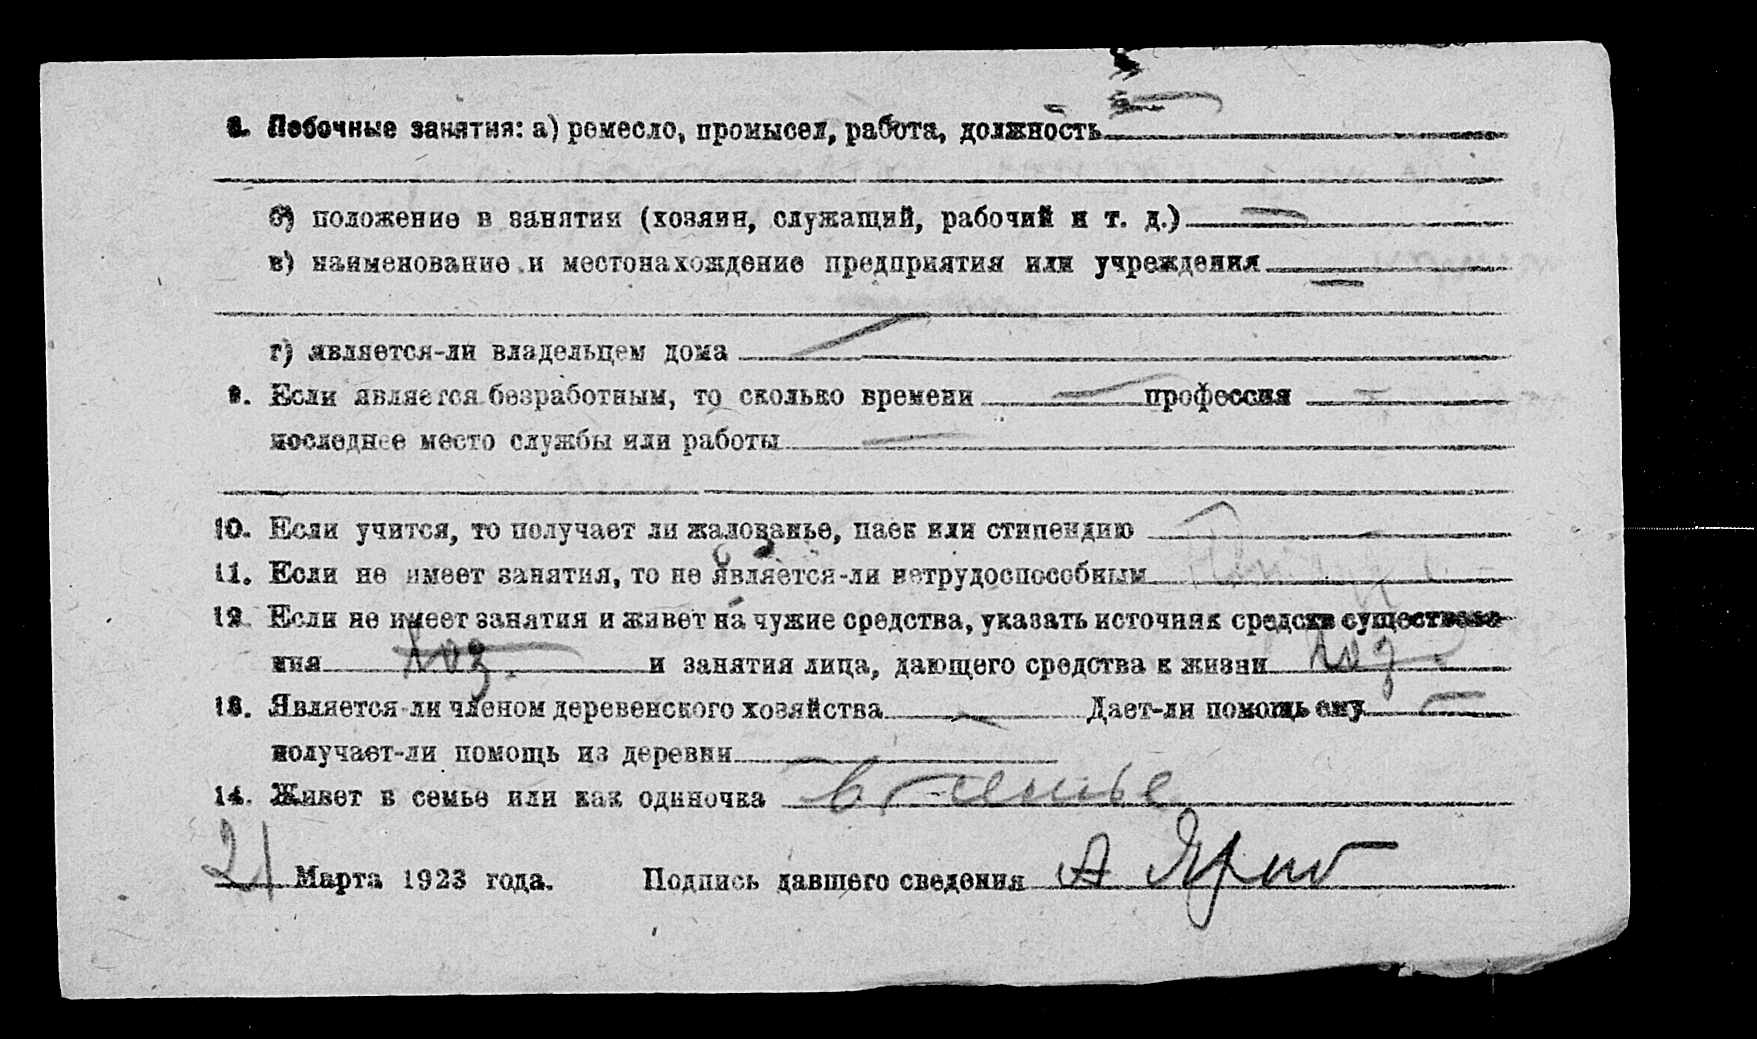 8. Побочные занятия: а) ремесло, промысел, работа, должность —
б) положение в занятии (хозяин, служащий, рабочий и т. д.) —
в) наименование и местонахождение предприятия или учреждения —
г) является-ли владельцем дома —
9. Если является безработным, то сколько времени — профессия —
последнее место службы или работы —
10. Если учится, то получает ли жалованье, паек или стипендию —
11. Если не имеет занятия, то не является-ли нетрудоспособным
12. Если не имеет занятия и живет на чужие средства, указать источник средств существова-
ния хоз. и занятия лица, дающего средства к жизни хоз.
13. Является-ли членом деревенского хозяйства — Дает-ли помощь ему —
получает-ли помощь из деревни —
14. Живет в семье или как одиночка в семье
21 Марта 1923 года. Подпись давшего сведения А